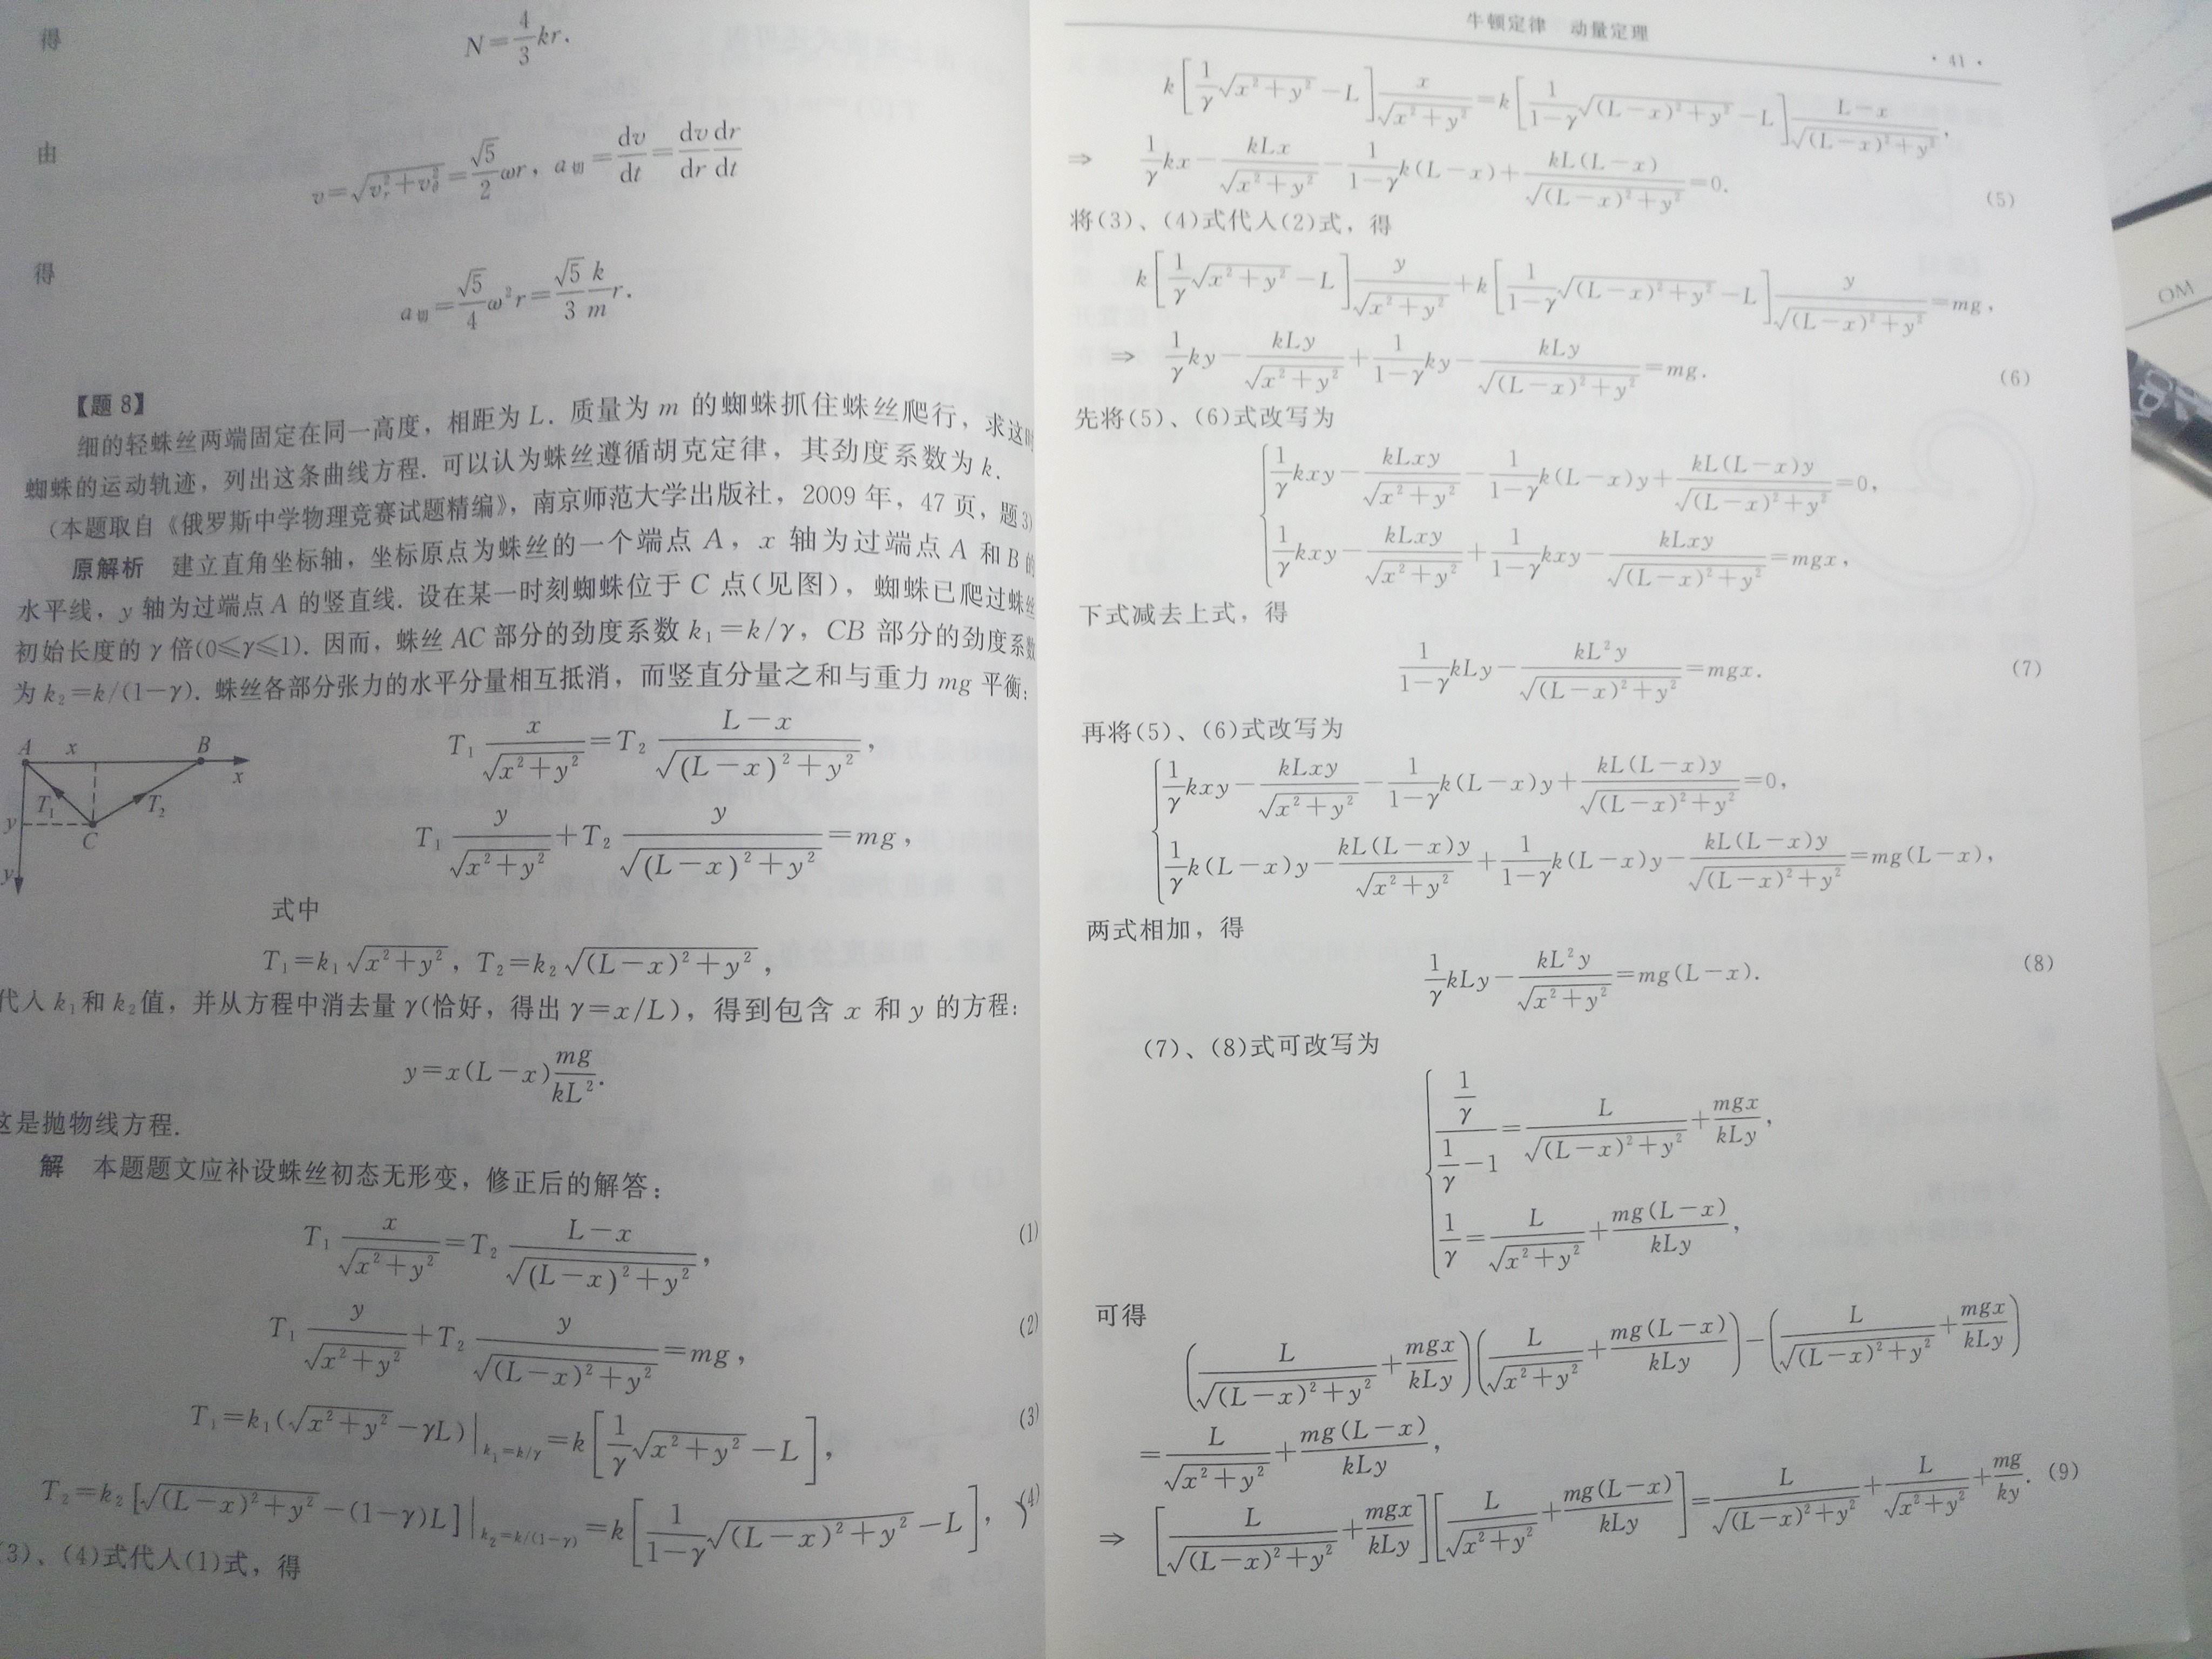 得
N=\frac{4}{3}kr.
由
v=\sqrt{v_r^2+v_θ^2}=\frac{\sqrt{5}}{2}ωr, a_切=\frac{dv}{dt}=\frac{dv}{dr}\frac{dr}{dt}
得
a_切=\frac{\sqrt{5}}{4}ω^2r=\frac{\sqrt{5}}{3}\frac{k}{m}r.
【题 8】
细的轻蛛丝两端固定在同一高度，相距为 L. 质量为 m 的蜘蛛抓住蛛丝爬行，求这时
蜘蛛的运动轨迹，列出这条曲线方程. 可以认为蛛丝遵循胡克定律，其劲度系数为 k.
(本题取自《俄罗斯中学物理竞赛试题精编》，南京师范大学出版社，2009 年，47 页，题 3)
原解析 建立直角坐标轴，坐标原点为蛛丝的一个端点 A，x 轴为过端点 A 和 B 的
水平线，y 轴为过端点 A 的竖直线. 设在某一时刻蜘蛛位于 C 点(见图)，蜘蛛已爬过蛛丝
初始长度的 γ 倍(0≤γ≤1). 因而，蛛丝 AC 部分的劲度系数 k_1=k/γ，CB 部分的劲度系数
为 k_2=k/(1-γ). 蛛丝各部分张力的水平分量相互抵消，而竖直分量之和与重力 mg 平衡:
A x B x
T_1 T_2
y C
y
T_1\frac{x}{\sqrt{x^2+y^2}}=T_2\frac{L-x}{\sqrt{(L-x)^2+y^2}},
T_1\frac{y}{\sqrt{x^2+y^2}}+T_2\frac{y}{\sqrt{(L-x)^2+y^2}}=mg,
式中
T_1=k_1\sqrt{x^2+y^2}, T_2=k_2\sqrt{(L-x)^2+y^2},
代入 k_1和 k_2值，并从方程中消去量 γ(恰好，得出 γ=x/L)，得到包含 x 和 y 的方程:
y=x(L-x)\frac{mg}{kL^2}.
这是抛物线方程.
解 本题题文应补设蛛丝初态无形变，修正后的解答:
T_1\frac{x}{\sqrt{x^2+y^2}}=T_2\frac{L-x}{\sqrt{(L-x)^2+y^2}}, (1)
T_1\frac{y}{\sqrt{x^2+y^2}}+T_2\frac{y}{\sqrt{(L-x)^2+y^2}}=mg, (2)
T_1=k_1(\sqrt{x^2+y^2}-γL)|_{k_1=k/γ}=k[\frac{1}{γ}\sqrt{x^2+y^2}-L], (3)
T_2=k_2[\sqrt{(L-x)^2+y^2}-(1-γ)L]|_{k_2=k/(1-γ)}=k[\frac{1}{1-γ}\sqrt{(L-x)^2+y^2}-L], (4)
(3)、(4)式代入(1)式，得
牛顿定律 动量定理
· 41 ·
k[\frac{1}{γ}\sqrt{x^2+y^2}-L]\frac{x}{\sqrt{x^2+y^2}}=k[\frac{1}{1-γ}\sqrt{(L-x)^2+y^2}-L]\frac{L-x}{\sqrt{(L-x)^2+y^2}},
⇒ \frac{1}{γ}kx-\frac{kLx}{\sqrt{x^2+y^2}}-\frac{1}{1-γ}k(L-x)+\frac{kL(L-x)}{\sqrt{(L-x)^2+y^2}}=0. (5)
将(3)、(4)式代入(2)式，得
k[\frac{1}{γ}\sqrt{x^2+y^2}-L]\frac{y}{\sqrt{x^2+y^2}}+k[\frac{1}{1-γ}\sqrt{(L-x)^2+y^2}-L]\frac{y}{\sqrt{(L-x)^2+y^2}}=mg,
⇒ \frac{1}{γ}ky-\frac{kLy}{\sqrt{x^2+y^2}}+\frac{1}{1-γ}ky-\frac{kLy}{\sqrt{(L-x)^2+y^2}}=mg. (6)
先将(5)、(6)式改写为
\frac{1}{γ}kxy-\frac{kLxy}{\sqrt{x^2+y^2}}-\frac{1}{1-γ}k(L-x)y+\frac{kL(L-x)y}{\sqrt{(L-x)^2+y^2}}=0,
\frac{1}{γ}kxy-\frac{kLxy}{\sqrt{x^2+y^2}}+\frac{1}{1-γ}kxy-\frac{kLxy}{\sqrt{(L-x)^2+y^2}}=mgx,
下式减去上式，得
\frac{1}{1-γ}kLy-\frac{kL^2y}{\sqrt{(L-x)^2+y^2}}=mgx. (7)
再将(5)、(6)式改写为
\frac{1}{γ}kxy-\frac{kLxy}{\sqrt{x^2+y^2}}-\frac{1}{1-γ}k(L-x)y+\frac{kL(L-x)y}{\sqrt{(L-x)^2+y^2}}=0,
\frac{1}{γ}k(L-x)y-\frac{kL(L-x)y}{\sqrt{x^2+y^2}}+\frac{1}{1-γ}k(L-x)y-\frac{kL(L-x)y}{\sqrt{(L-x)^2+y^2}}=mg(L-x),
两式相加，得
\frac{1}{γ}kLy-\frac{kL^2y}{\sqrt{x^2+y^2}}=mg(L-x). (8)
(7)、(8)式可改写为
\frac{\frac{1}{γ}}{\frac{1}{γ}-1}=\frac{L}{\sqrt{(L-x)^2+y^2}}+\frac{mgx}{kLy},
\frac{1}{γ}=\frac{L}{\sqrt{x^2+y^2}}+\frac{mg(L-x)}{kLy},
可得
(\frac{L}{\sqrt{(L-x)^2+y^2}}+\frac{mgx}{kLy})(\frac{L}{\sqrt{x^2+y^2}}+\frac{mg(L-x)}{kLy})-(\frac{L}{\sqrt{(L-x)^2+y^2}}+\frac{mgx}{kLy})
=\frac{L}{\sqrt{x^2+y^2}}+\frac{mg(L-x)}{kLy},
⇒ [\frac{L}{\sqrt{(L-x)^2+y^2}}+\frac{mgx}{kLy}][\frac{L}{\sqrt{x^2+y^2}}+\frac{mg(L-x)}{kLy}]=\frac{L}{\sqrt{(L-x)^2+y^2}}+\frac{L}{\sqrt{x^2+y^2}}+\frac{mg}{ky}. (9)
OM